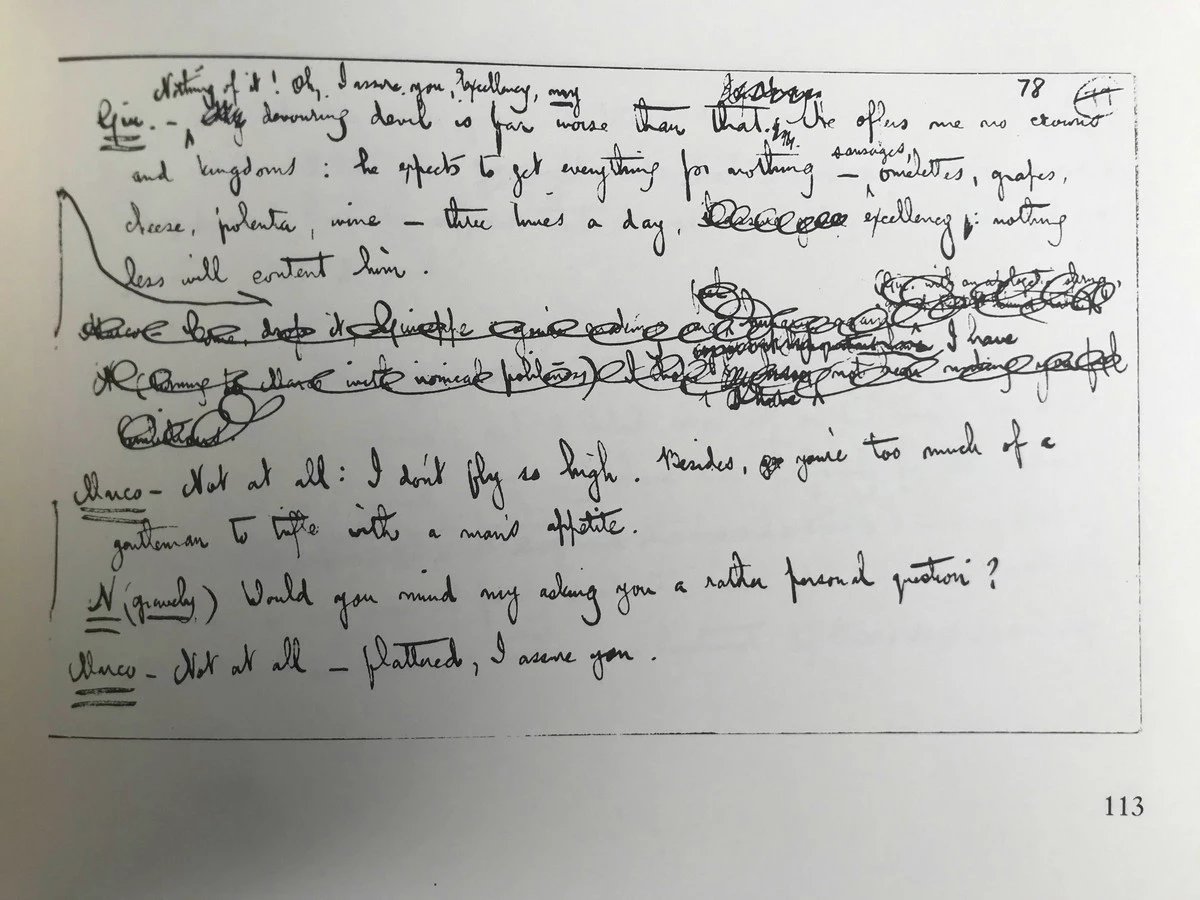 78
Nothing of it! Oh, I assure you, excellency, my
Giu. - devouring devil is far worse than that. He offers me no crowns
and kingdoms : he expects to get everything for nothing — sausages, omelettes, grapes,
cheese, polenta, wine — three times a day, excellency : nothing
less will content him.
come, drop it, Giuseppe
I have
(turning to Marco with ironical politeness) I
Marco - Not at all : I don't fly so high. Besides, you're too much of a
gentleman to trifle with a man's appetite.
N (gravely) Would you mind my asking you a rather personal question?
Marco - Not at all — flattered, I assure you.
113